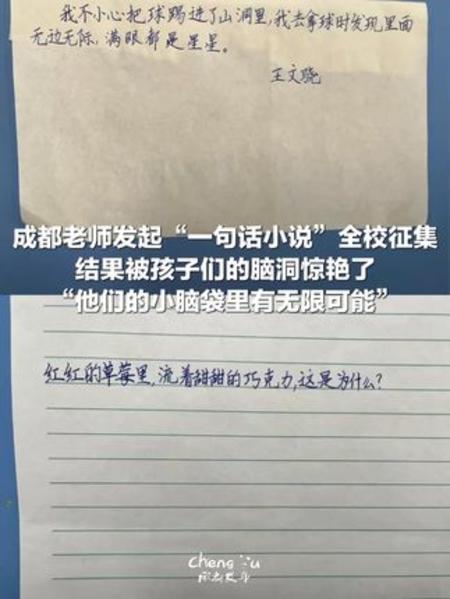 我不小心把球踢进了山洞里,我去拿球时发现里面
无边无际,满眼都是星星。
王文骁
成都老师发起“一句话小说”全校征集
结果被孩子们的脑洞惊艳了
“他们的小脑袋里有无限可能”
红红的草莓里,流着甜甜的巧克力,这是为什么?